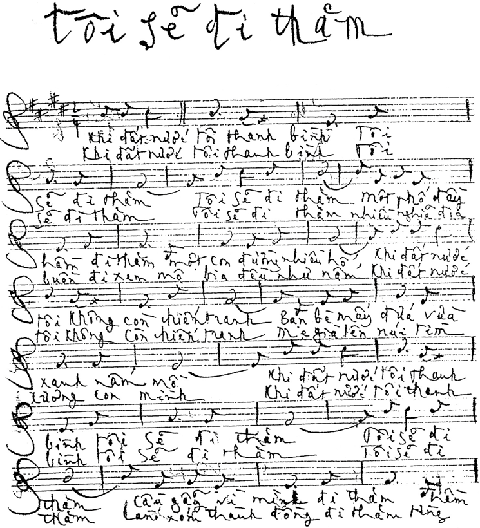 tôi sẽ đi thăm
Khi đất nước tôi thanh bình Tôi
Khi đất nước tôi thanh bình Tôi
sẽ đi thăm Tôi sẽ đi thăm một phố đầy
sẽ đi thăm Tôi sẽ đi thăm nhiều nghĩa địa
hầm đi thăm một con đường nhiều hố Khi đất nước
buồn đi xem mộ bia đều như nấm Khi đất nước
tôi không còn chiến tranh Bạn bè mấy đứa vừa
tôi không còn chiến tranh Mẹ già lên núi tìm
xanh nấm mồ Khi đất nước tôi thanh
xương con mình Khi đất nước tôi thanh
bình tôi sẽ đi thăm Tôi sẽ đi
bình tôi sẽ đi thăm Tôi sẽ đi
thăm Cầu gãy vì mìn đi thăm hầm
thăm Làng xóm thành đồng đi thăm từng